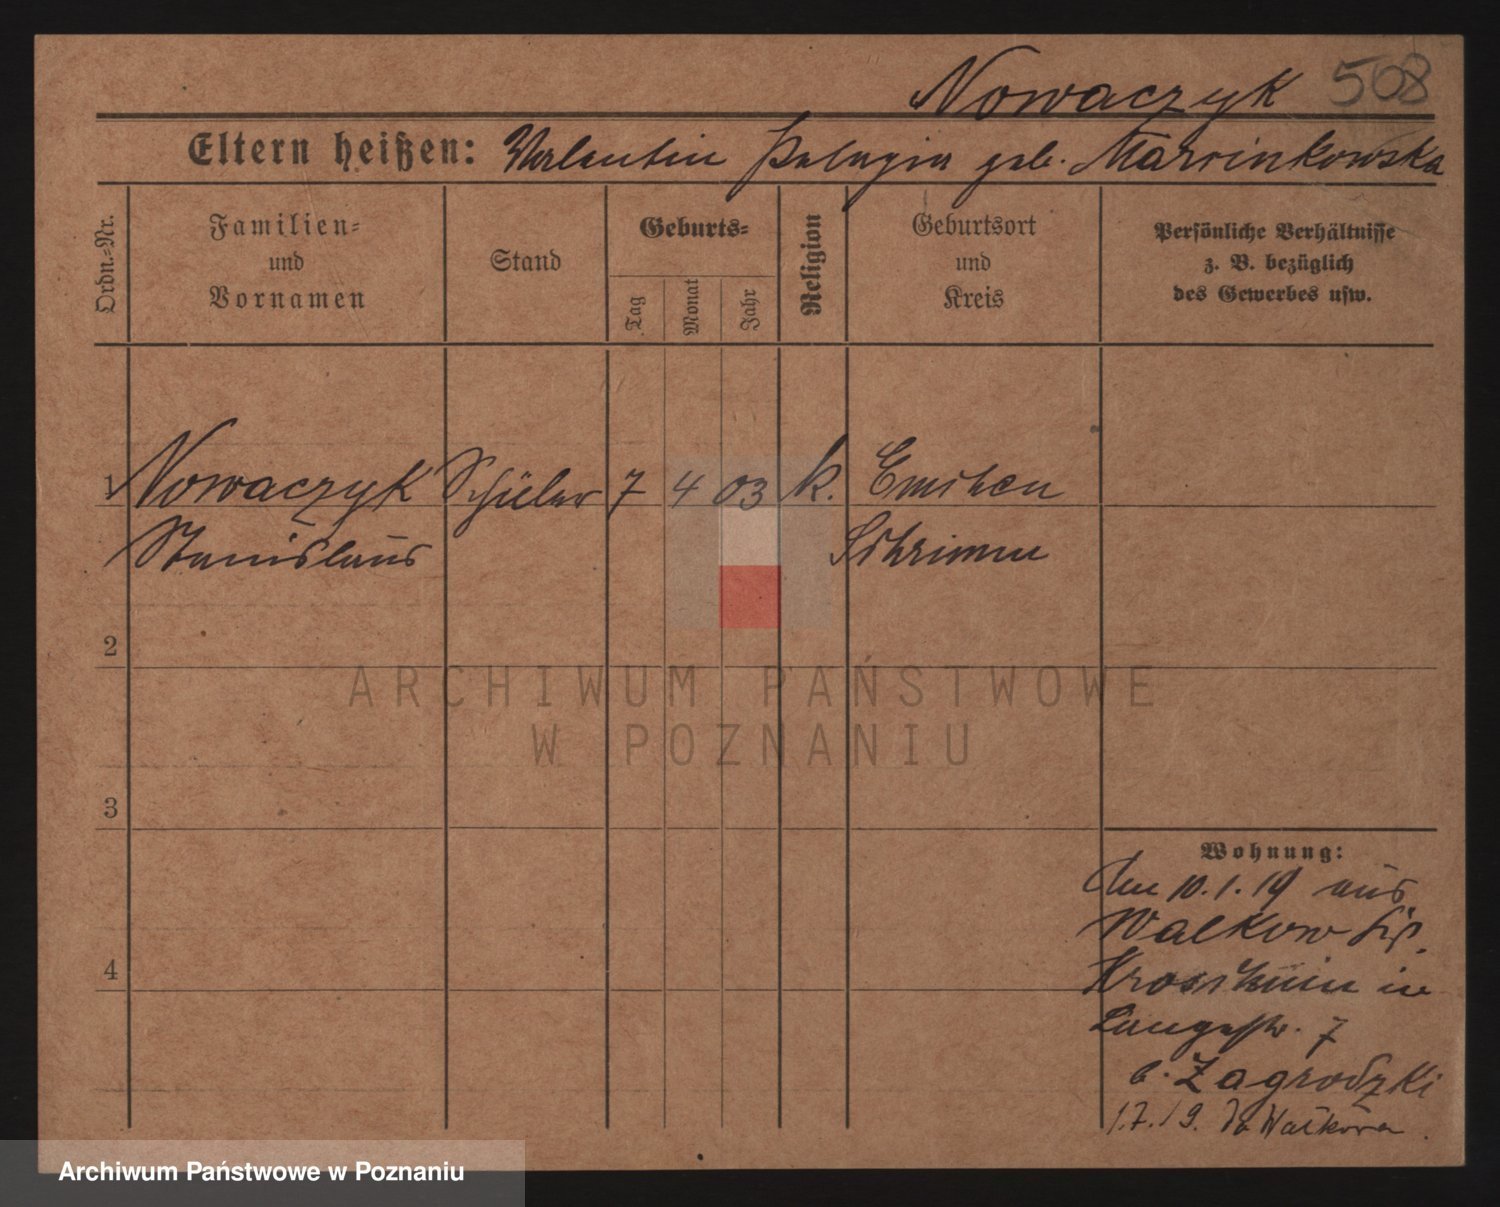 Nowaczyk 508
Eltern heißen: Valentin Pelagia geb. Marcinkowska
Ordn.-Nr.
Familien-
und
Vornamen
Stand
Geburts-
Tag
Monat
Jahr
Religion
Geburtsort
und
Kreis
Persönliche Verhältnisse
z. B. bezüglich
des Gewerbes usw.
1 Nowaczyk Schüler 7 4 03 k. Emchen
Stanislaus Schrimm
2
ARCHIWUM PAŃSTWOWE
W POZNANIU
3
Wohnung:
Am 10.1.19 aus
Walkow
4
Kroschmin in
Langestr. 7
b. Zagrodzki
1.7.19. do Walkowa
Archiwum Państwowe w Poznaniu